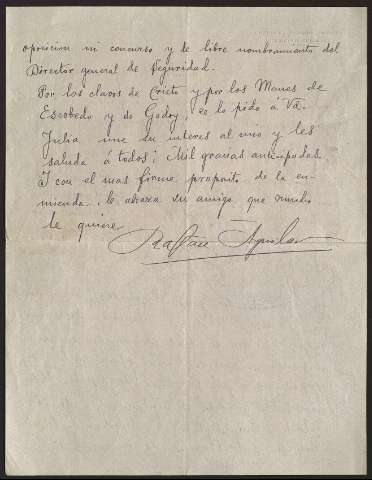 oposición ni concurso y de libre nombramiento del
Director general de Seguridad.
Por los clavos de Cristo y por los Manes de
Escobedo y de Godoy, se lo pido á Vd.
Julia une su interes al mio y les
saluda á todos; Mil gracias anticipadas.
Y con el mas firme proposito de la en-
mienda, le abraza su amigo que mucho
le quiere
Rafael Aguilar